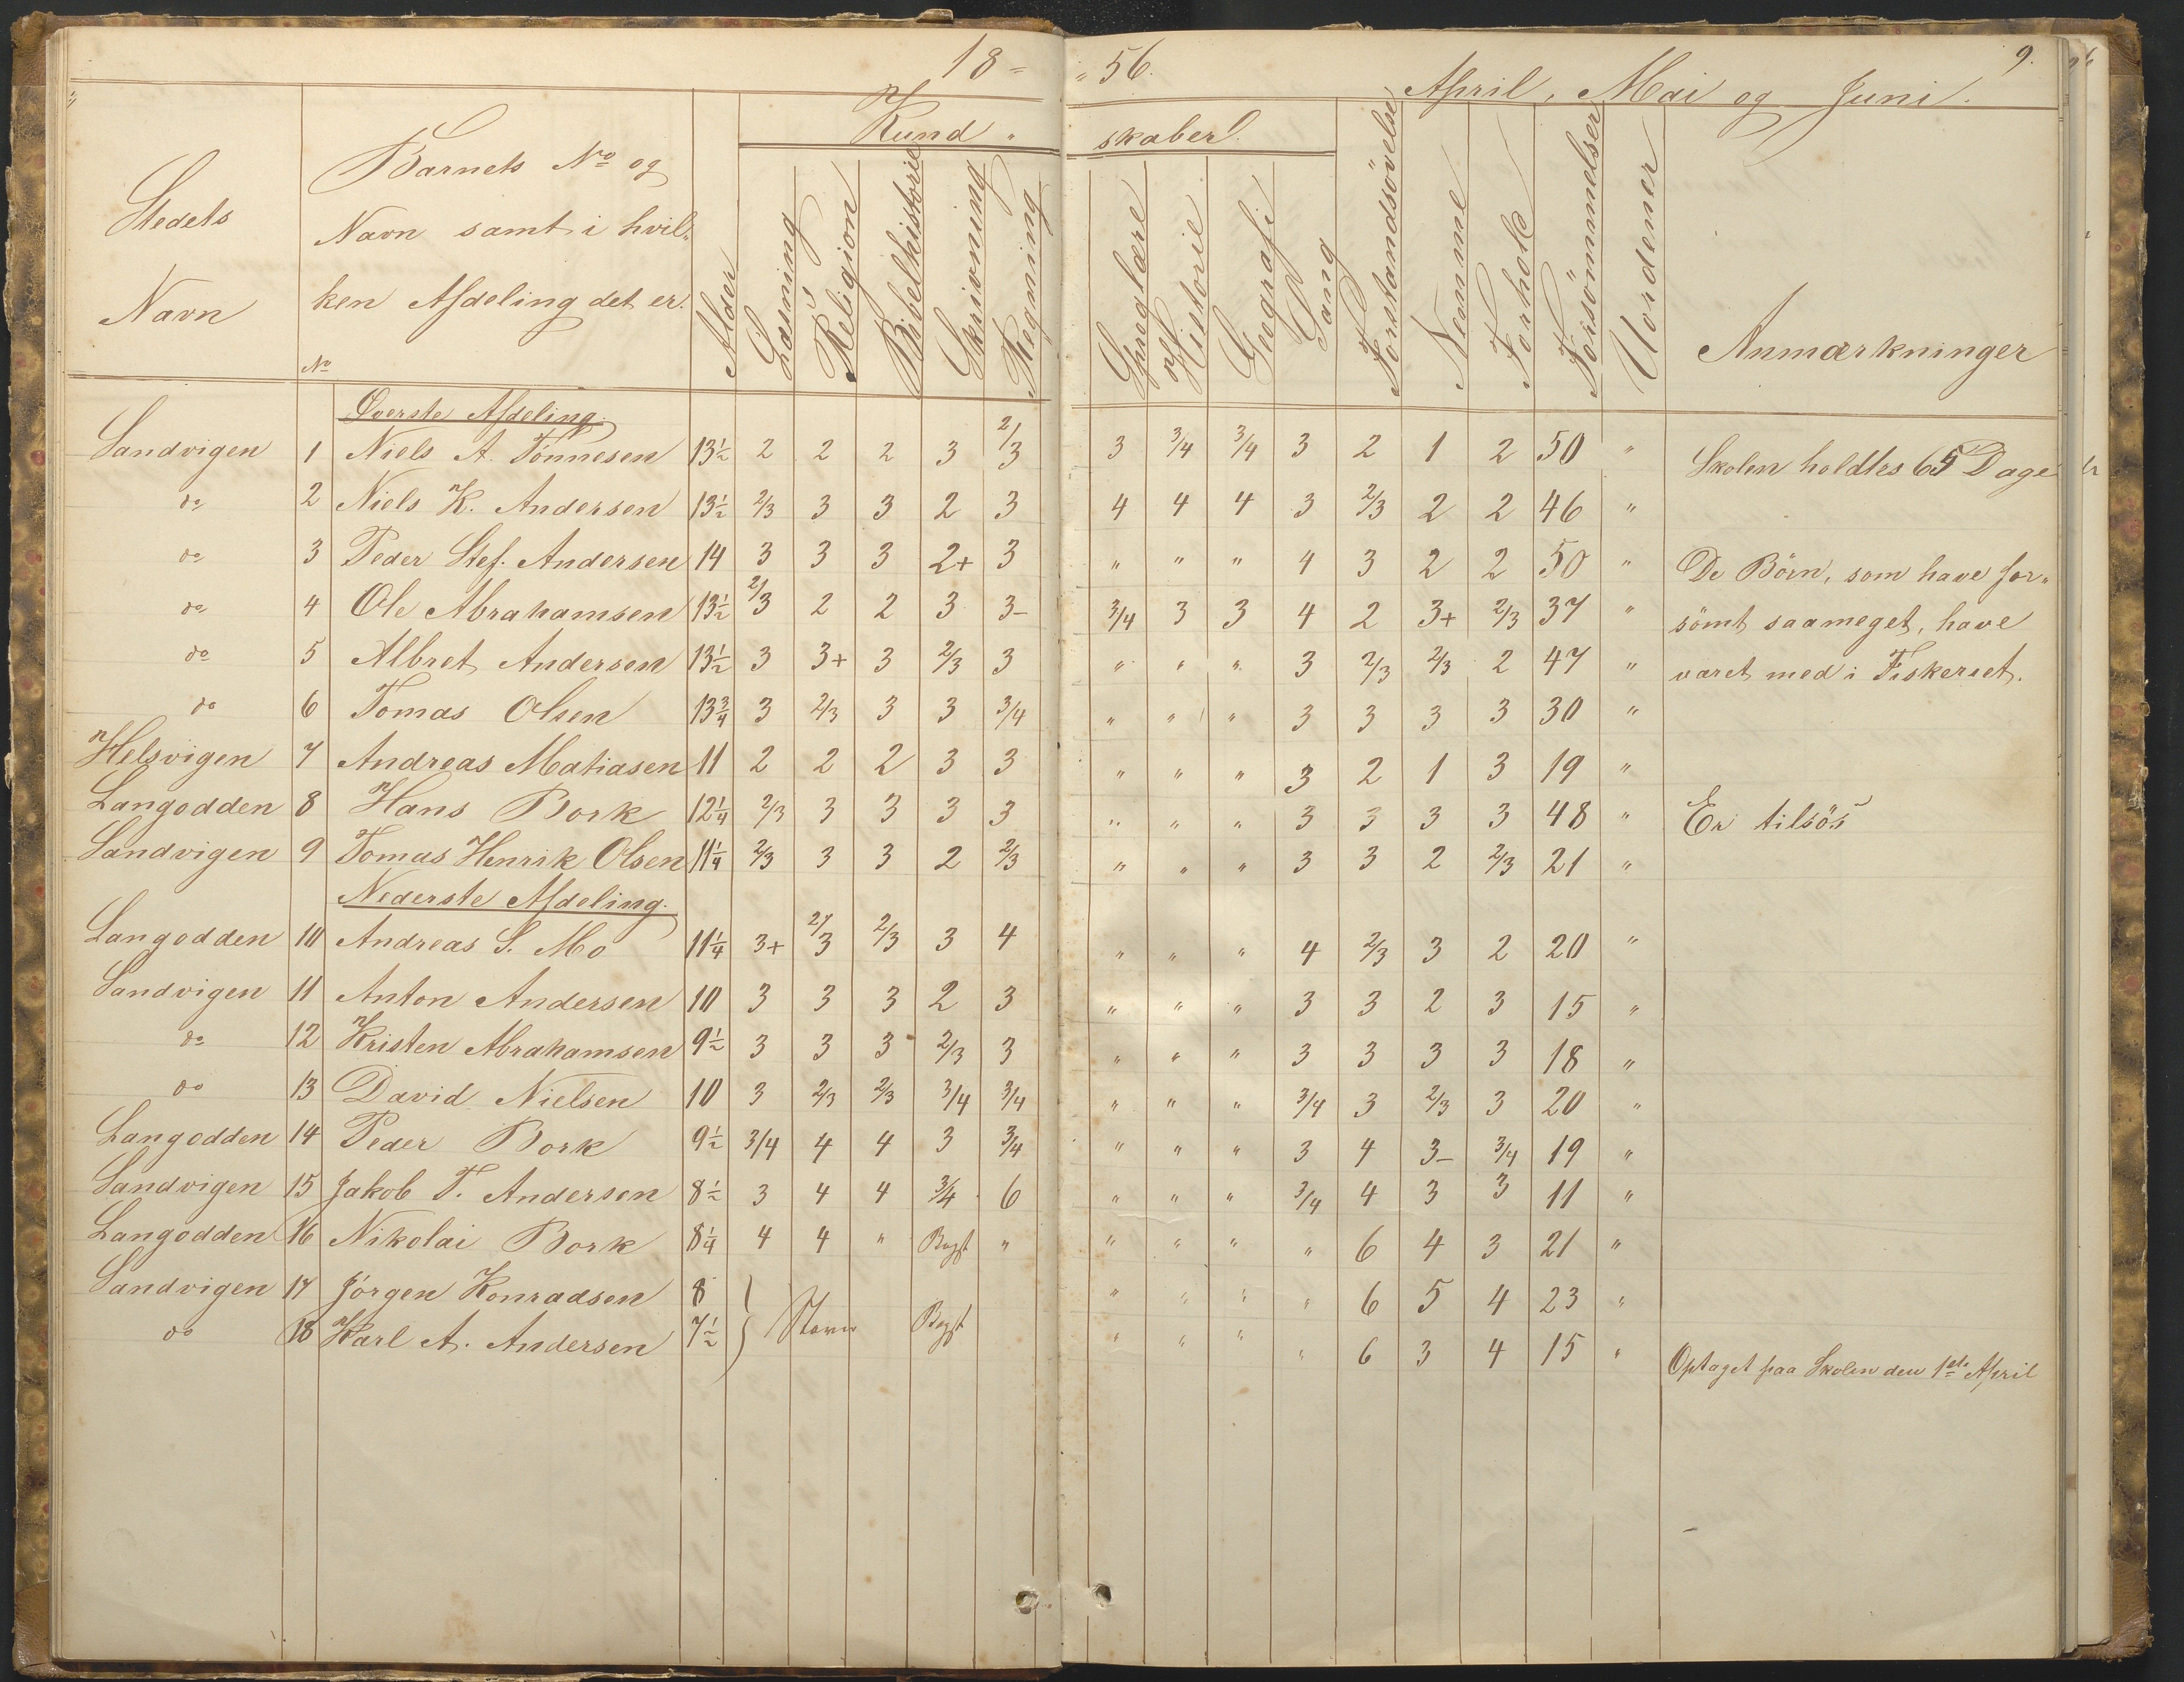 18 = " 56. 9.
April, Mai og Juni.
Stedets Navn | Barnets No og Navn samt i hvil- ken Afdeling det er. | Alder | Kund " skaber. | Forstandsövelse | Nemme | Forhold | Forsömmelser | Uordener | Anmærkninger
No | Læsning | Religion | Bibelhistorie | Skrivning | Regning | Sproglære | Historie | Geografi | Sang
Øverste Afdeling.
Sandvigen 1 Niels A. Tönnesen 13½ 2 2 2 3 2/3 3 3/4 3/4 3 2 1 2 50 " Skolen holdtes 65 Dage
do 2 Niels K. Andersen 13½ 2/3 3 3 2 3 4 4 4 3 2/3 2 2 46 "
do 3 Peder Stef. Andersen 14 3 3 3 2+ 3 " " " 4 3 2 2 50 " De Börn, som have for-
do 4 Ole Abrahamsen 13½ 2/3 2 2 3 3- 3/4 3 3 4 2 3+ 2/3 37 " sömt saameget, have
do 5 Albret Andersen 13½ 3 3+ 3 2/3 3 " " " 3 2/3 2/3 2 47 " været med i Fiskeriet.
do 6 Tomas Olsen 13¾ 3 2/3 3 3 3/4 " " " 3 3 3 3 30 "
Helsvigen 7 Andreas Matiasen 11 2 2 2 3 3 " " " 3 2 1 3 19 "
Langodden 8 Hans Bork 12¼ 2/3 3 3 3 3 " " " 3 3 3 3 48 " Er tilsös
Sandvigen 9 Tomas Henrik Olsen 11¼ 2/3 3 3 2 2/3 " " " 3 3 2 2/3 21 "
Nederste Afdeling.
Langodden 10 Andreas S. Mo 11¼ 3+ 2/3 2/3 3 4 " " " 4 2/3 3 2 20 "
Sandvigen 11 Anton Andersen 10 3 3 3 2 3 " " " 3 3 2 3 15 "
do 12 Kristen Abrahamsen 9½ 3 3 3 2/3 3 " " " 3 3 3 3 18 "
do 13 David Nielsen 10 3 2/3 2/3 3/4 3/4 " " " 3/4 3 2/3 3 20 "
Langodden 14 Peder Bork 9½ 3/4 4 4 3 3/4 " " " 3 4 3- 3/4 19 "
Sandvigen 15 Jakob T. Andersen 8½ 3 4 4 3/4 6 " " " 3/4 4 3 3 11 "
Langodden 16 Nikolai Bork 8¼ 4 4 " Bogst " " " " " 6 4 3 21 "
Sandvigen 17 Jörgen Konradsen 8 } Staver Bogst " " " " 6 5 4 23 "
do 18 Karl A. Andersen 7½ " " " " 6 3 4 15 " Optaget paa Skolen den 1ste April